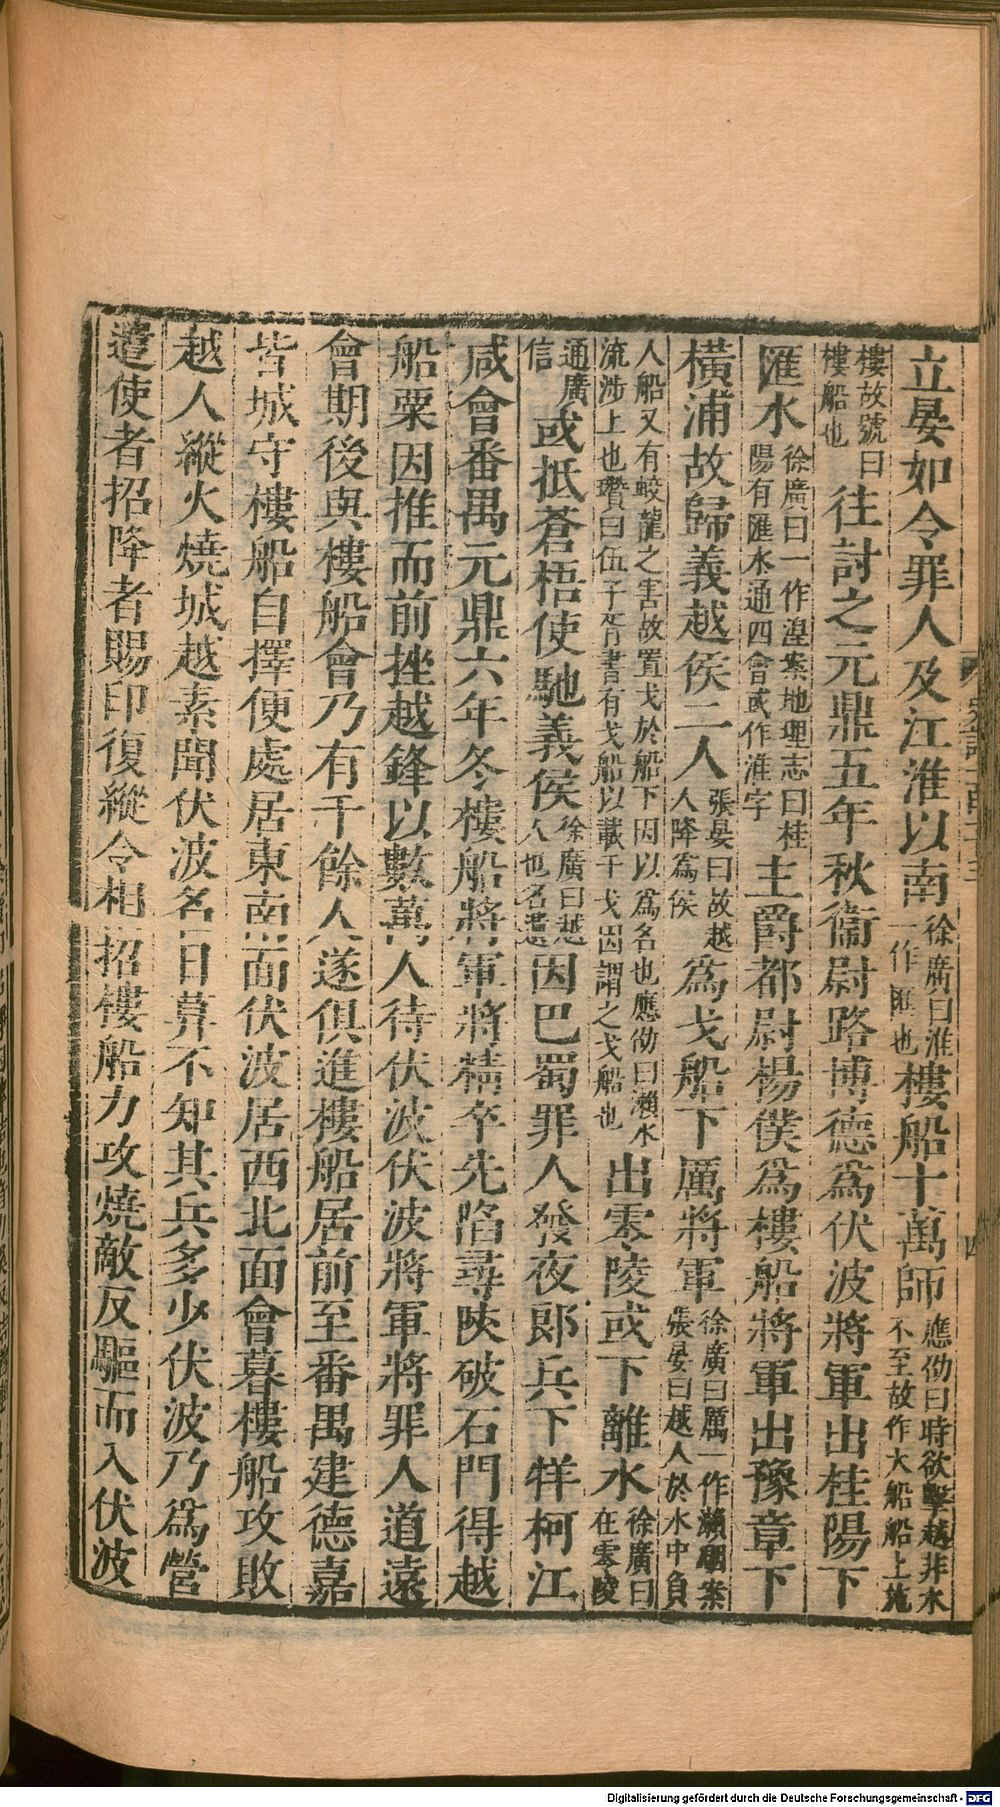 立晏如令罪人及江淮以南徐廣曰淮一作匯也樓船十萬師應劭曰時欲擊越非水不至故作大船船上施
樓故號曰樓船也往討之元鼎五年秋衞尉路博德爲伏波將軍出桂陽下
匯水徐廣曰一作湟案地理志曰桂陽有匯水通四會或作淮字主爵都尉楊僕爲樓船將軍出豫章下
橫浦故歸義越侯二人張晏曰故越人降爲侯爲戈船下厲將軍徐廣曰厲一作瀨駰案張晏曰越人於水中負
人船又有蛟龍之害故置戈於船下因以爲名也應劭曰瀨水流涉上也瓚曰伍子胥書有戈船以載干戈因謂之戈船也出零陵或下離水徐廣曰在零陵
通廣信或抵蒼梧使馳義侯徐廣曰越人也名遺因巴蜀罪人發夜郎兵下牂柯江
咸會番禺元鼎六年冬樓船將軍將精卒先陷尋陜破石門得越
船粟因推而前挫越鋒以數萬人待伏波伏波將軍將罪人道遠
會期後與樓船會乃有千餘人遂俱進樓船居前至番禺建德嘉
皆城守樓船自擇便處居東南面伏波居西北面會暮樓船攻敗
越人縱火燒城越素聞伏波名日莫不知其兵多少伏波乃爲營
遣使者招降者賜印復縱令相招樓船力攻燒敵反驅而入伏波
四
Digitalisierung gefördert durch die Deutsche Forschungsgemeinschaft - DFG